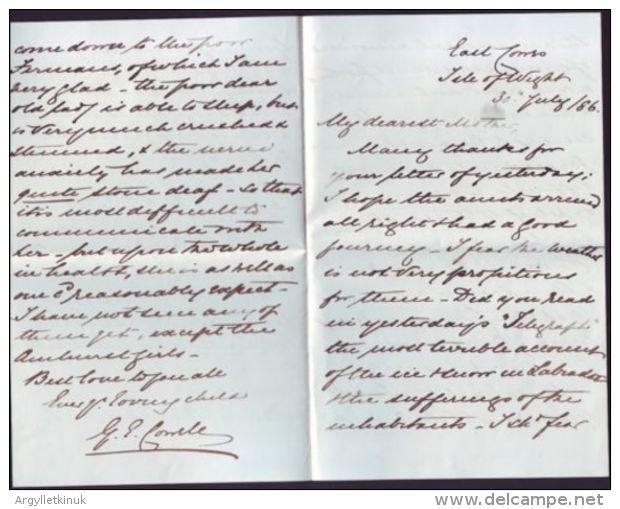 East Cowes
Isle of Wight
30 July /86.
My dearest Mother,
Many thanks for
your letter of yesterday;
I hope the aunts arrived
all right & had a good
journey - I fear the weather
is not very propitious
for them - Did you read
in yesterday's "Telegraph"
the most terrible account
of the ice & snow in Labrador
& the sufferings of the
inhabitants - I shd fear
come down to the poor
of which I am
very glad - the poor dear
old lady is able to sleep, but
is very much crushed &
stunned, & the nerve
anxiety has made her
quite stone deaf - so that
it is most difficult to
communicate with
her - but upon the whole
in health, she is as well as
one cd reasonably expect -
I have not seen any of
them yet, except the
Amhurst girls -
Best love to you all
Ever yr loving child
G. E. Cowell
Argylletkinuk
www.delcampe.net